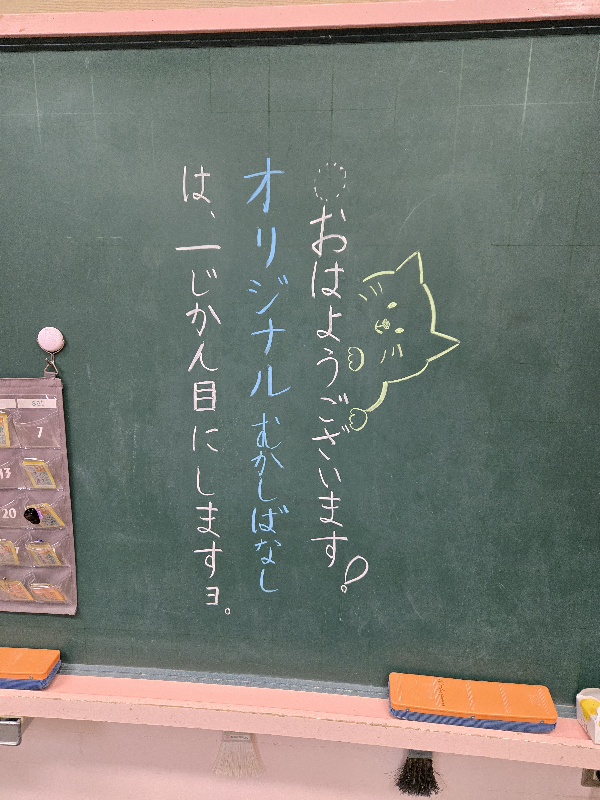 おはようございます!
オリジナルむかしばなし
は、一じかん目にしますョ。
set
7
13
20